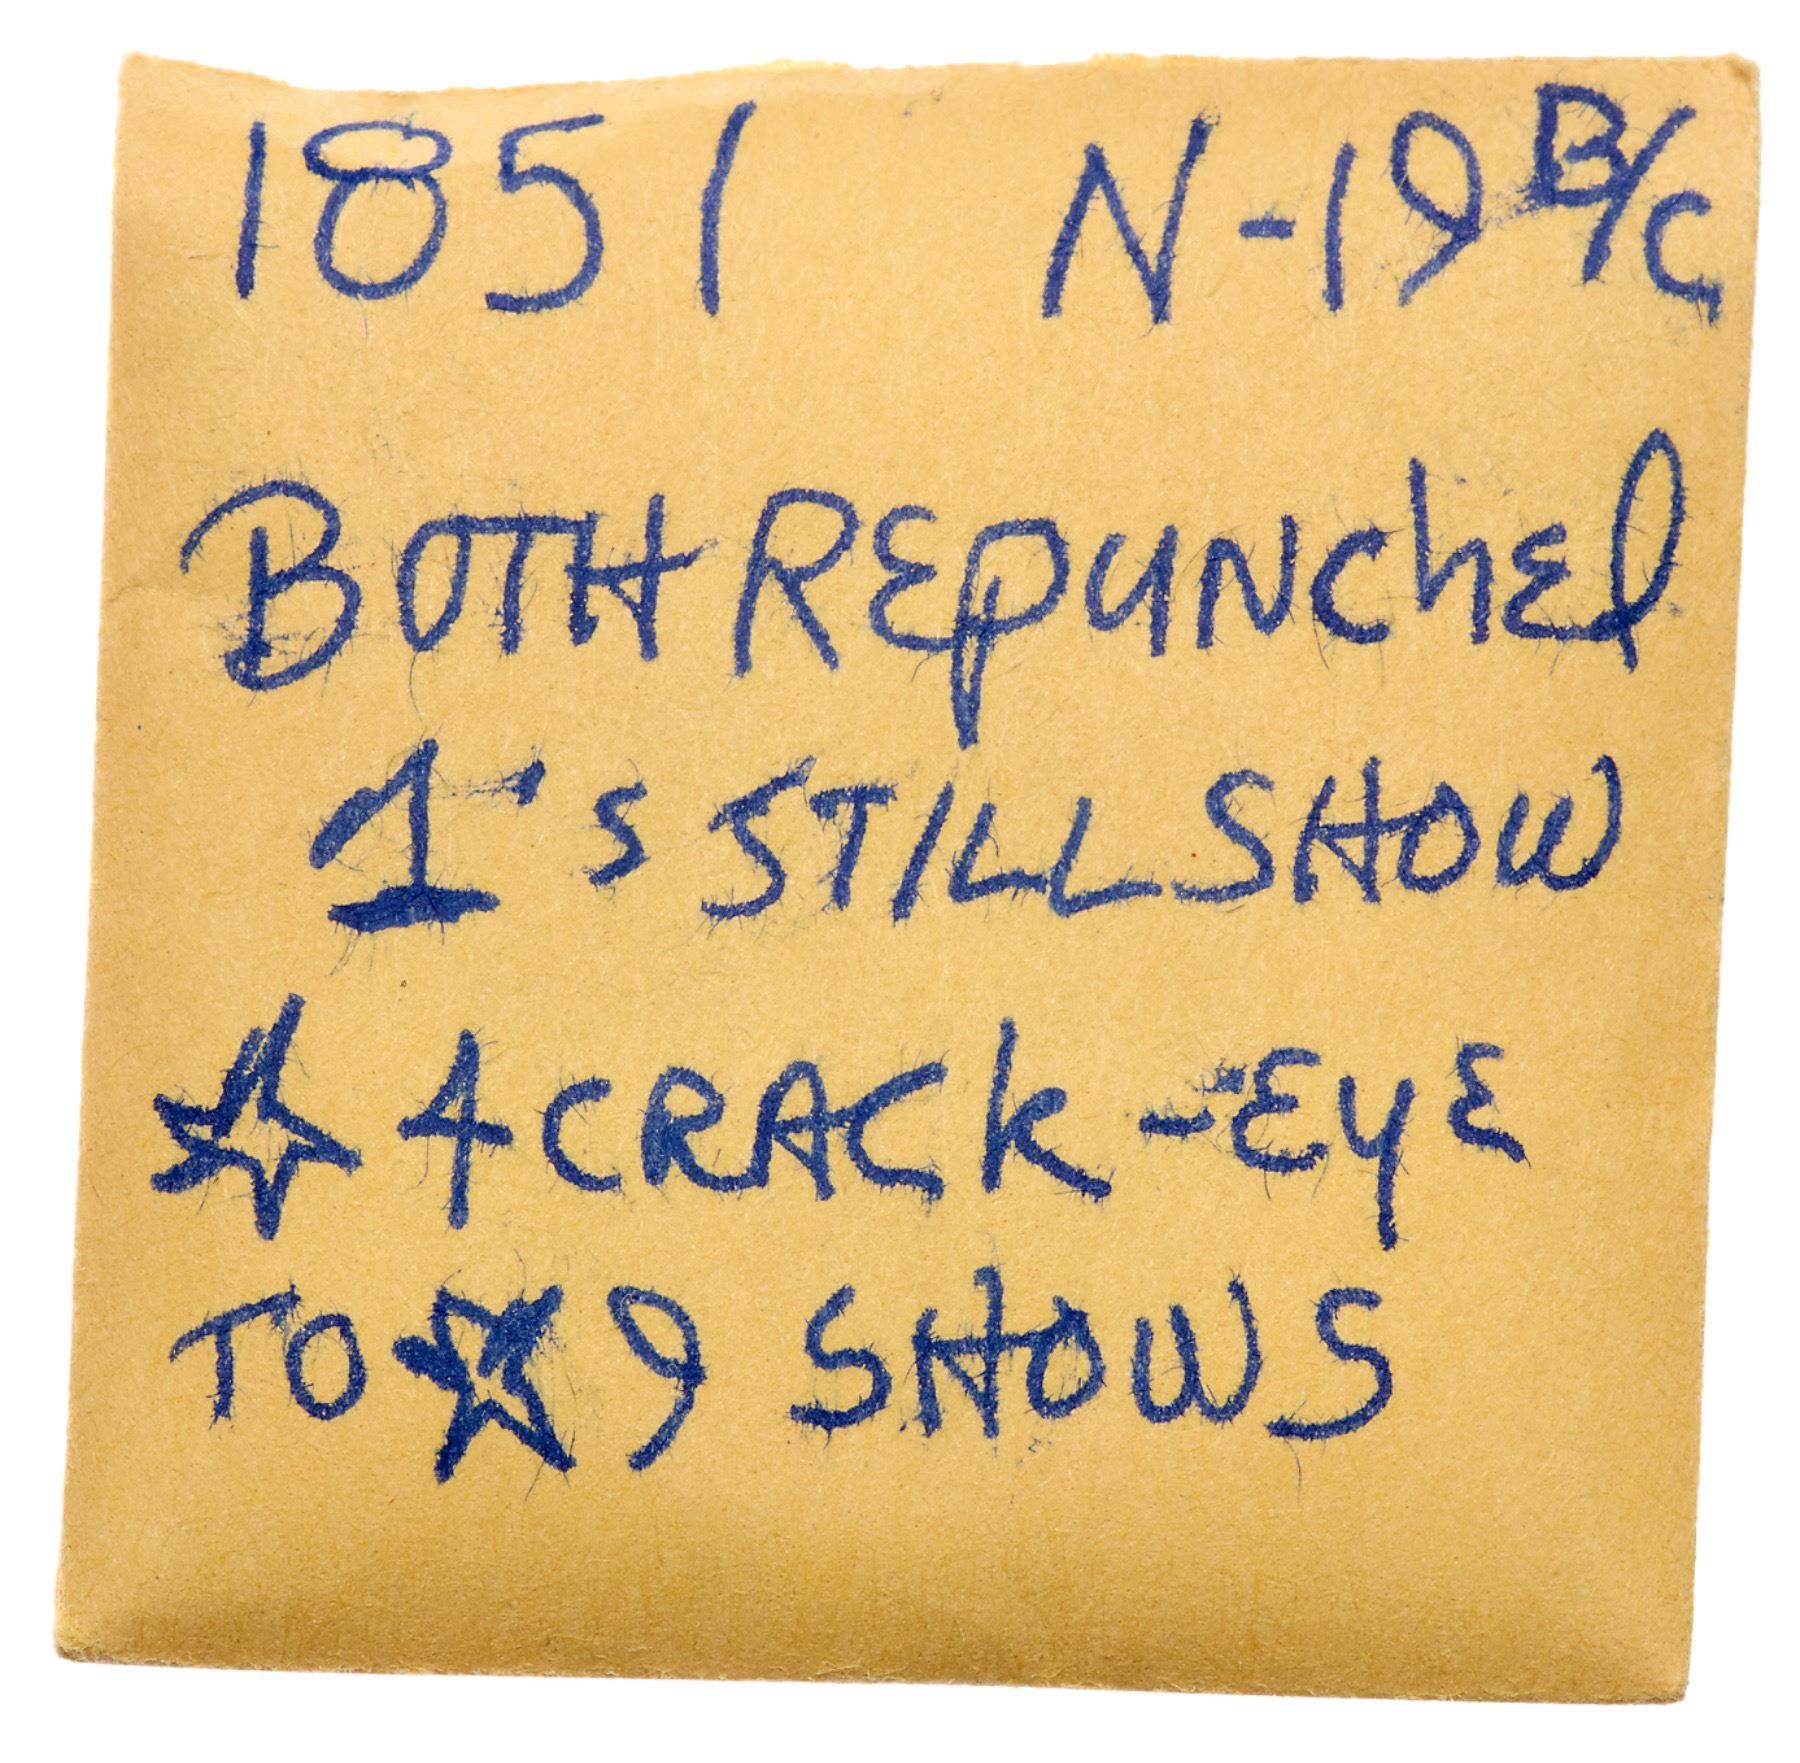 1851 N-19 B/C
BOTH REpUNChEd
1's STILL SHOW
☆ 4 CRACk - EyE
TO ☆ 9 SHOWS